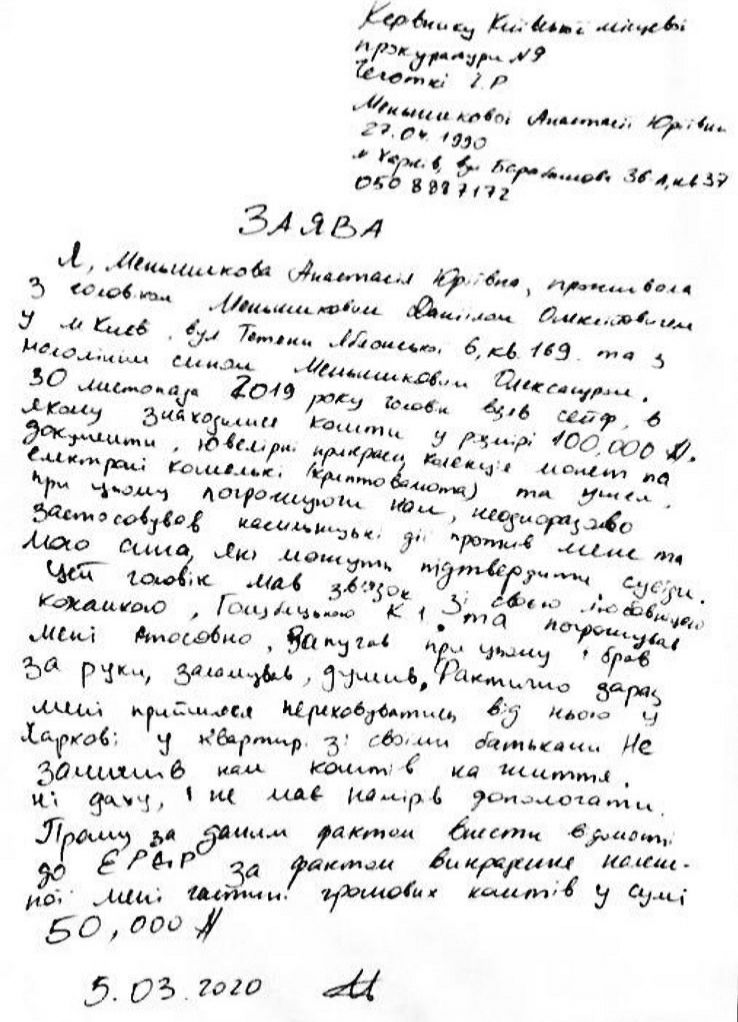 Керівнику Київської місцевої
прокуратури №9
І.Р
Меньшикової Анастасії Юріївни
27.04.1990
м Харків, вул Барабашова 36 А, кв 37
050 8987172
ЗАЯВА
Я, Меньшикова Анастасія Юріївна, проживала
з чоловіком Меньшиковим Даніїлом Олексійовичем
у м Києв, вул Тетяни Яблонської 6, кв. 169. та з
малолітнім сином Меньшиковим Олександром.
30 листопада 2019 року чоловік взяв сейф, в
якому знаходилися кошти у розмірі 100,000 $.
документи, ювелірні прикраси, колекція монет та
електроні кошелькі (криптовалюта) та
при цьому погрожуючи нам, неодноразово
застосовував насильницькі дії против мене та
мого сина, які можуть підтвердити судіди.
Цей чоловік мав зв'язок зі своєю любовницею
коханкою, К І. та погрожував
мені стосовно, запугав при цьому і брав
за руки, заламував, душив. Фактично зараз
мені прийшлося переховуватись від нього у
Харкові у квартирі зі своїми батьками Не
залишив нам коштів на життя.
ні даху, і не мав намірів допомогати.
Прошу за даним фактом внести відомості
до ЕРДР за фактом викрадення належ-
ної мені частині грошових коштів у сумі
50,000 $
5.03.2020